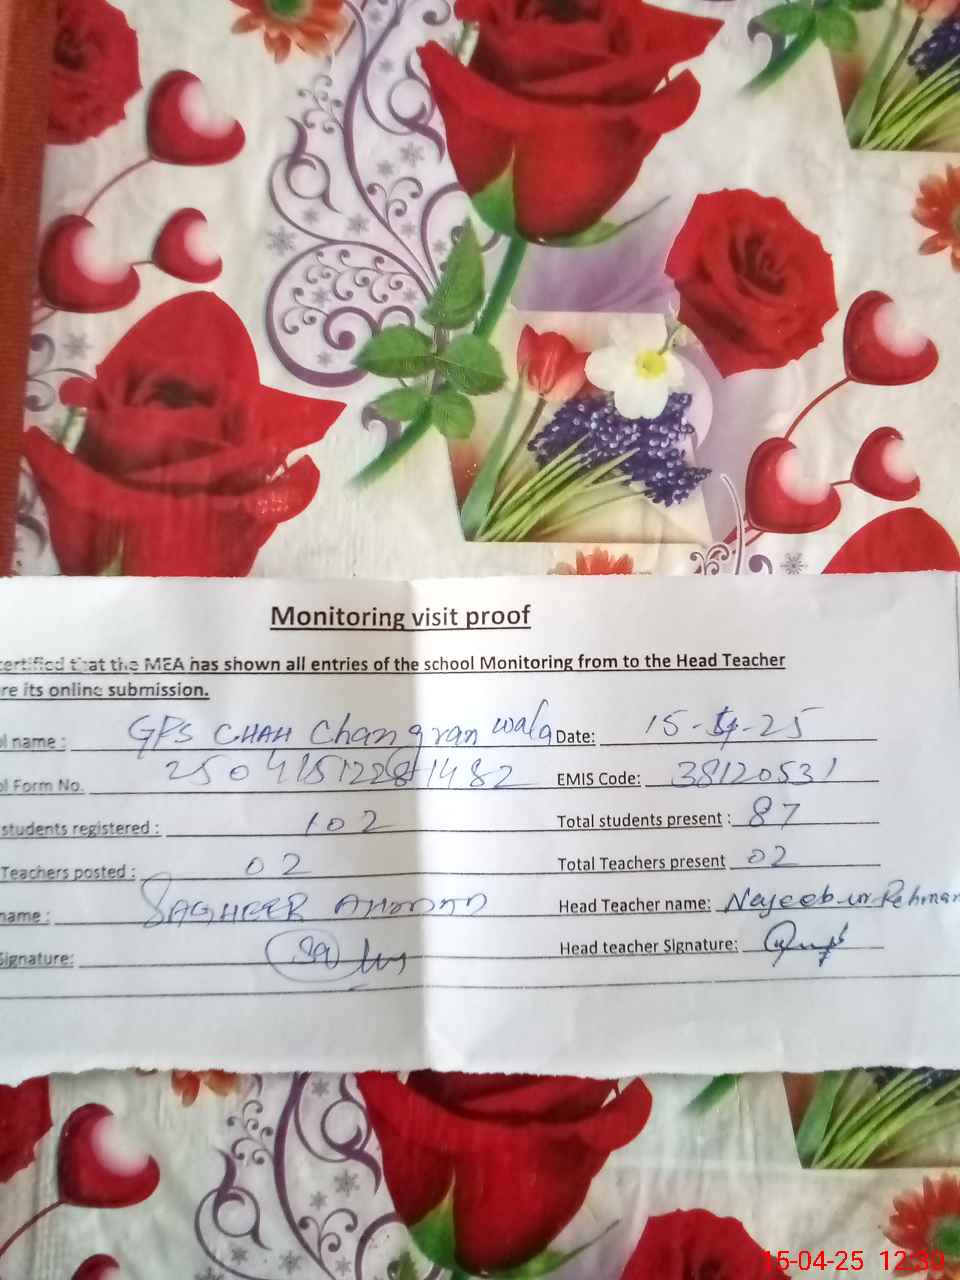 Monitoring visit proof
certified that the MEA has shown all entries of the school Monitoring from to the Head Teacher
re its online submission.
l name : GPS CHAH Changran wala Date: 15-4-25
ol Form No. EMIS Code: 38120531
students registered : 102 Total students present : 87
Teachers posted : 02 Total Teachers present 02
name : SAGHEER AHMAD Head Teacher name: Najeeb ur Rehman
Signature: Head teacher Signature:
15-04-25 12:30